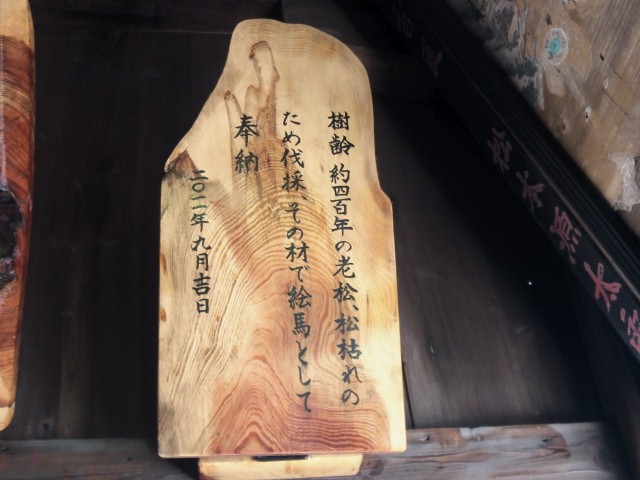 樹齢 約四百年の老松、松枯れの
ため伐採、その材で絵馬として
奉納
二〇一一年九月吉日